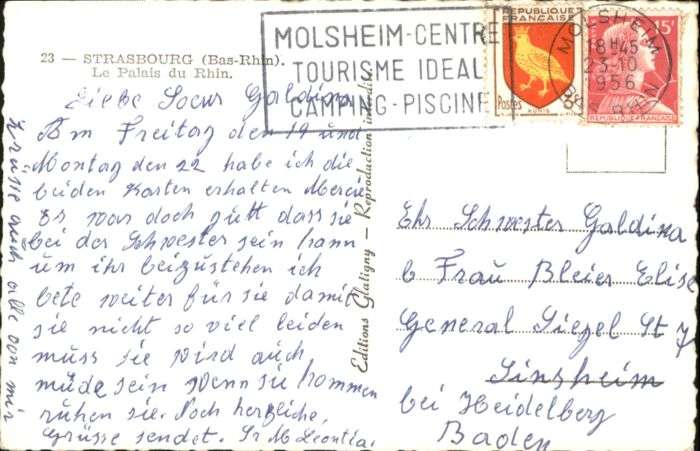 23 — STRASBOURG (Bas-Rhin).
Le Palais du Rhin.
MOLSHEIM-CENTRE
TOURISME IDEAL
CAMPING-PISCINE
REPUBLIQUE
FRANÇAISE
Postes
AUNIS
MOLSHEIM
18H45
23-10
1956
BAS-RHIN
15F
REPUBLIQUE FRANÇAISE
Liebe Soeur Galdina
Am Freitag den 19 und
Montag den 22 habe ich die
beiden Karten erhalten Mercie
Es war doch gutt dass sie
bei der Schwester sein kann
um ihr beizustehen ich
bete weiter für sie damit
sie nicht so viel leiden
muss sie wird auch
müde sein wenn sie kommen
ruhen sie. Noch herzliche,
Grüsse sendet. Sr M Leontia.
Grüsse mich alle von mir
Editions Glatigny — Reproduction interdite
Ehr Schwester Galdina
b Frau Bleier Elise
General Siegel St 7
Sinsheim
bei Heidelberg
Baden